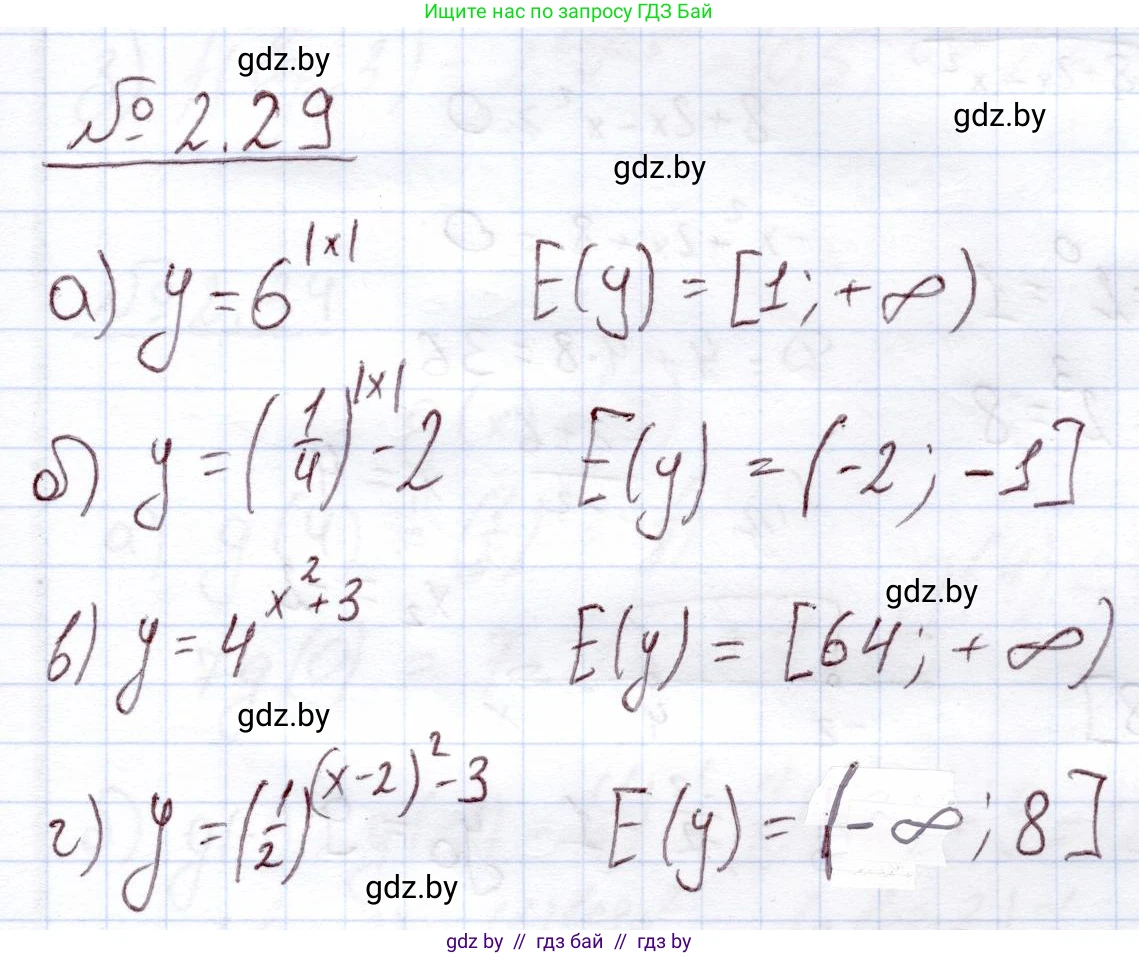 Ищите нас по запросу ГДЗ Бай
gdz.by
№ 2.29
gdz.by
gdz.by
а) y = 6^|x| E(y) = [1; + ∞)
б) y = (1/4)^|x| - 2 E(y) = (-2; -1]
gdz.by
в) y = 4^(x² + 3) E(y) = [64; + ∞)
gdz.by
г) y = (1/2)^((x-2)² - 3) E(y) = (- ∞; 8]
gdz.by
gdz by // гдз бай // гдз by